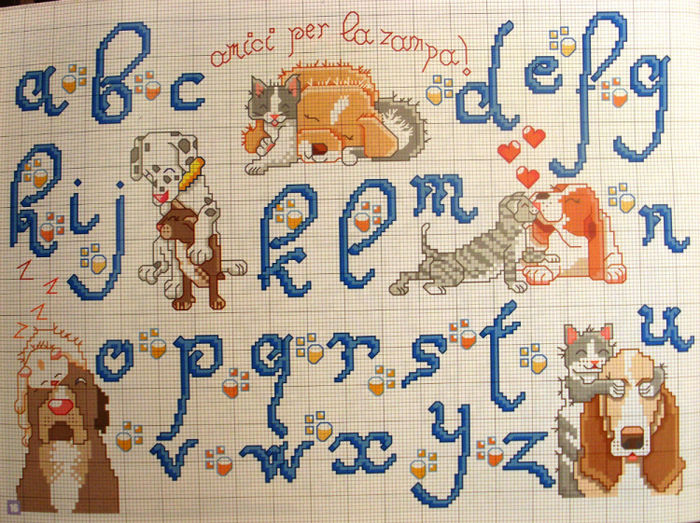 amici per la zampa!
a b c d e f g
h i j k l m n
z
z
z
z
o p q r s t u
v w x y z